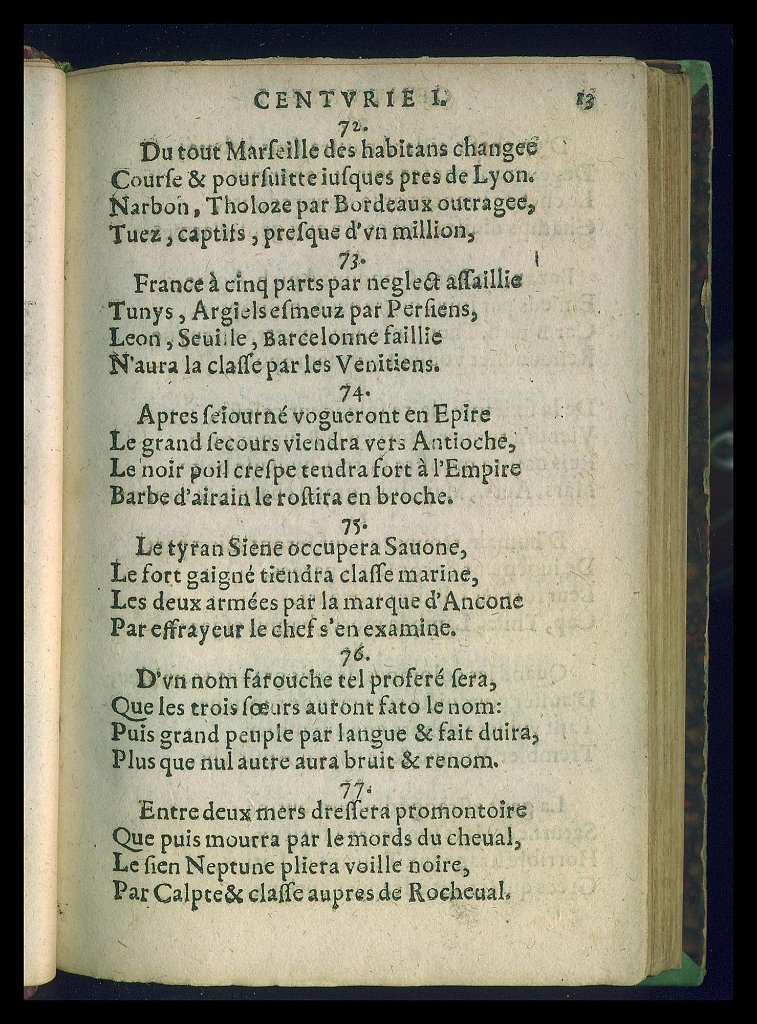 CENTVRIE I. 13
72.
Du tout Marſeille des habitans changee
Courſe & pourſuitte iuſques pres de Lyon.
Narbon, Tholoze par Bordeaux outragee,
Tuez, captifs, preſque d'vn million,
73.
France à cinq parts par neglect aſſaillie
Tunys, Argiels eſmeuz par Perſiens,
Leon, Seuille, Barcelonne faillie
N'aura la claſſe par les Venitiens.
74.
Apres ſeiourné vogueront en Epire
Le grand ſecours viendra vers Antioche,
Le noir poil creſpe tendra fort à l'Empire
Barbe d'airain le roſtira en broche.
75.
Le tyran Siene occupera Sauone,
Le fort gaigné tiendra claſſe marine,
Les deux armées par la marque d'Ancone
Par effrayeur le chef s'en examine.
76.
D'vn nom farouche tel proferé ſera,
Que les trois ſœurs auront fato le nom:
Puis grand peuple par langue & fait duira,
Plus que nul autre aura bruit & renom.
77.
Entre deux mers dreſſera promontoire
Que puis mourra par le mords du cheual,
Le ſien Neptune pliera voille noire,
Par Calpte & claſſe aupres de Rocheual.